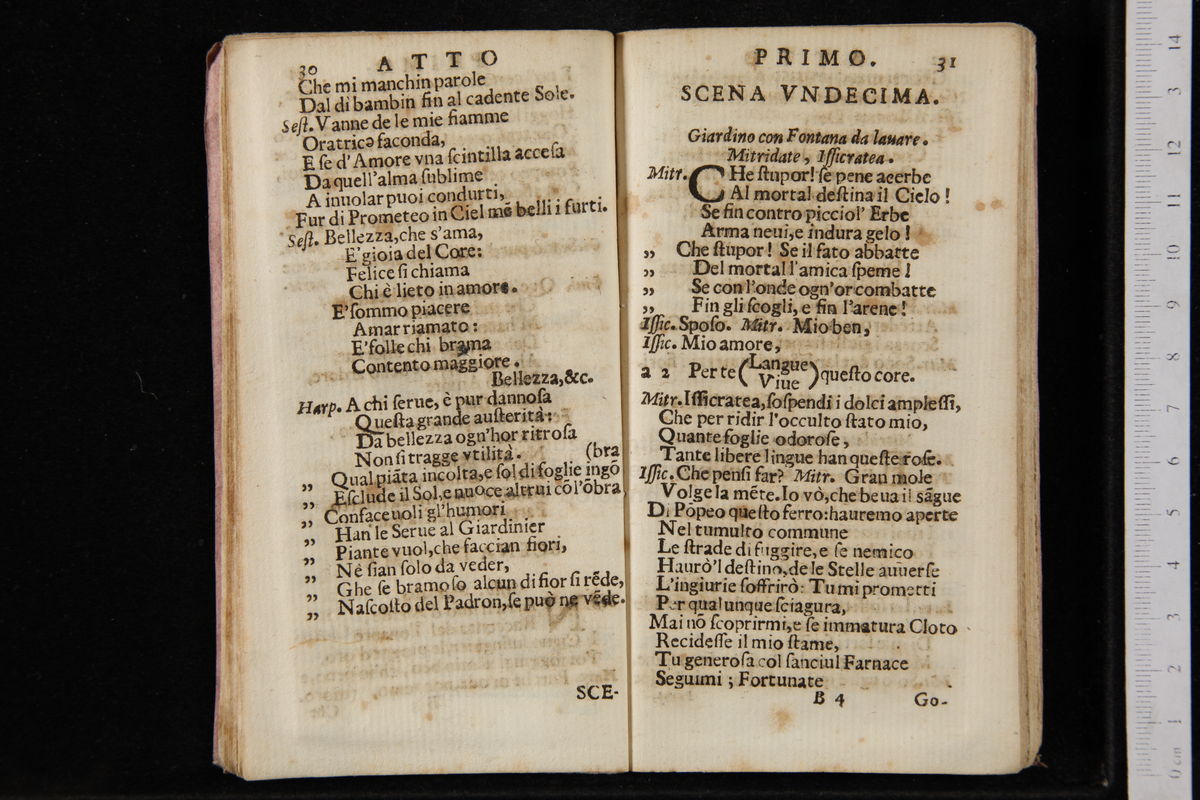 30 ATTO
Che mi manchin parole
Dal di bambin fin al cadente Sole.
Seſt. Vanne de le mie fiamme
Oratrice faconda,
E ſe d'Amore vna ſcintilla acceſa
Da quell'alma ſublime
A inuolar puoi condurti,
Fur di Prometeo in Ciel mẽ belli i furti.
Seſt. Bellezza, che s'ama,
E' gioia del Core:
Felice ſi chiama
Chi è lieto in amore.
E' ſommo piacere
Amar riamato:
E' folle chi brama
Contento maggiore.
Bellezza, &c.
Harp. A chi ſerue, è pur dannoſa
Queſta grande auſterità:
Da bellezza ogn'hor ritroſa
Non ſi tragge vtilità. (bra
„ Qual piãta incolta, e ſol di foglie ingõ
„ Eſclude il Sol, e nuoce altrui cõ l'õbra
„ Confaceuoli gl'humori
„ Han le Serue al Giardinier
„ Piante vuol, che faccian fiori,
„ Nè ſian ſolo da veder,
„ Ghe ſe bramoſo alcun di fior ſi rẽde,
„ Naſcoſto del Padron, ſe può ne vẽde.
SCE-
PRIMO. 31
SCENA VNDECIMA.
Giardino con Fontana da lauare.
Mitridate, Iſſicratea.
Mitr. CHe ſtupor! ſe pene acerbe
Al mortal deſtina il Cielo!
Se fin contro picciol' Erbe
Arma neui, e indura gelo!
„ Che ſtupor! Se il fato abbatte
„ Del mortal l'amica ſpeme!
„ Se con l'onde ogn'or combatte
„ Fin gli ſcogli, e fin l'arene!
Iſſic. Spoſo. Mitr. Mio ben,
Iſſic. Mio amore,
a 2 Per te (Langue
Viue) queſto core.
Mitr. Iſſicratea, ſoſpendi i dolci ampleſſi,
Che per ridir l'occulto ſtato mio,
Quante foglie odoroſe,
Tante libere lingue han queſte roſe.
Iſſic. Che penſi far? Mitr. Gran mole
Volge la mẽte. Io vò, che beua il sãgue
Di Põpeo queſto ferro: hauremo aperte
Nel tumulto commune
Le ſtrade di fuggire, e ſe nemico
Haurò'l deſtino, de le Stelle auuerſe
L'ingiurie ſoffrirò: Tu mi prometti
Per qualunque ſciagura,
Mai nõ ſcoprirmi, e ſe immatura Cloto
Recideſſe il mio ſtame,
Tu generoſa col fanciul Farnace
Seguimi; Fortunate
B 4 Go-